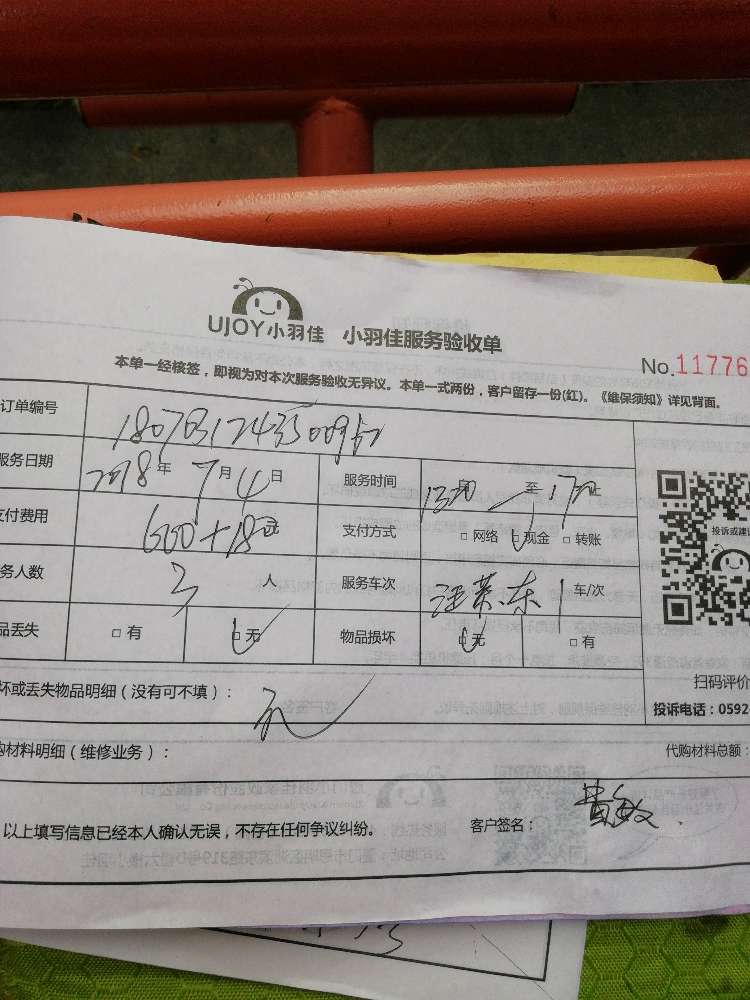 UJOY小羽佳 小羽佳服务验收单
No.11776
本单一经核签，即视为对本次服务验收无异议。本单一式两份，客户留存一份(红)。《维保须知》详见背面。
订单编号
服务日期 2018年 7月4日 服务时间 至 止
支付费用 600+18元 支付方式 □ 网络 □ 现金 □ 转账
务人数 3 人 服务车次 1 车/次
品丢失 □ 有 □ 无 物品损坏 □ 无 □ 有
投诉或建
坏或丢失物品明细（没有可不填）： 无
扫码评价
投诉电话：0592
购材料明细（维修业务）：
代购材料总额：
以上填写信息已经本人确认无误，不存在任何争议纠纷。 客户签名： 黄敏